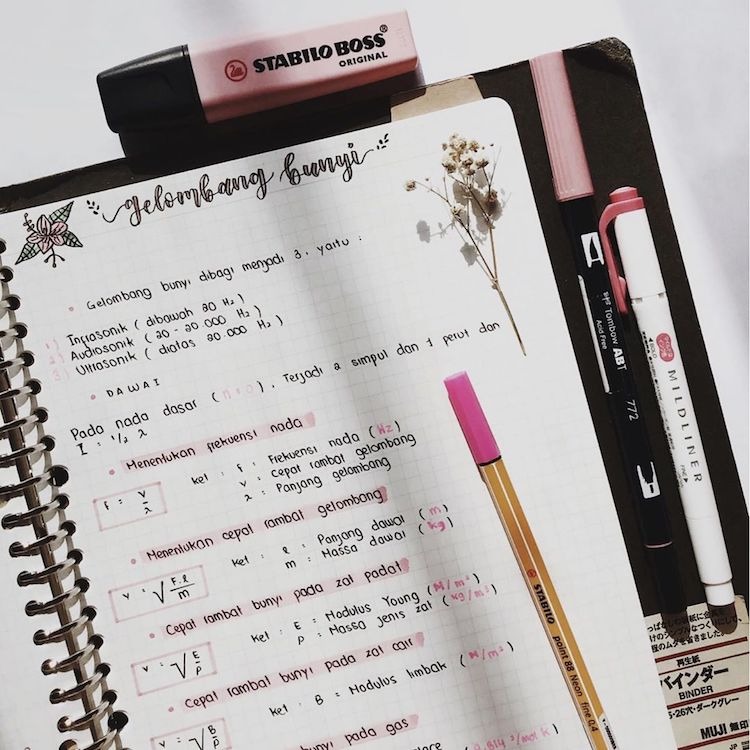 STABILO BOSS
ORIGINAL
gelombang bunyi
• Gelombang bunyi dibagi menjadi 3, yaitu :
1) Infrasonik ( dibawah 20 Hz )
2) Audiosonik ( 20 - 20.000 Hz )
3) Ultrasonik ( diatas 20.000 Hz )
• DAWAI
Pada nada dasar ( n = 0 ), Terjadi 2 simpul dan 1 perut dan
l = 1/2 λ
• Menentukan frekuensi nada
f = v/λ
ket : f : Frekuensi nada ( Hz )
v = Cepat rambat gelombang
λ = Panjang gelombang
• Menentukan cepat rambat gelombang
v = √F.l/m
ket : l = Panjang dawai ( m )
m = Massa dawai ( kg )
• Cepat rambat bunyi pada zat padat
v = √E/ρ
ket : E = Modulus Young ( N/m² )
ρ = Massa jenis zat ( kg/m³ )
• Cepat rambat bunyi pada zat cair
v = √B/ρ
ket : B = Modulus limbak ( N/m² )
bunyi pada gas
Tombow ABT
Acid Free
772
MILDLINER
STABILO
point 88 Neon fine 0.4
再生紙
バインダー
BINDER
26穴・ダークグレー
MUJI 無印